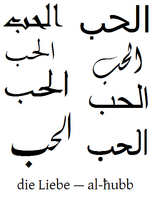 الحب الحب
الحب الحب
الحب الحب
الحب الحب
die Liebe — al-ħubb